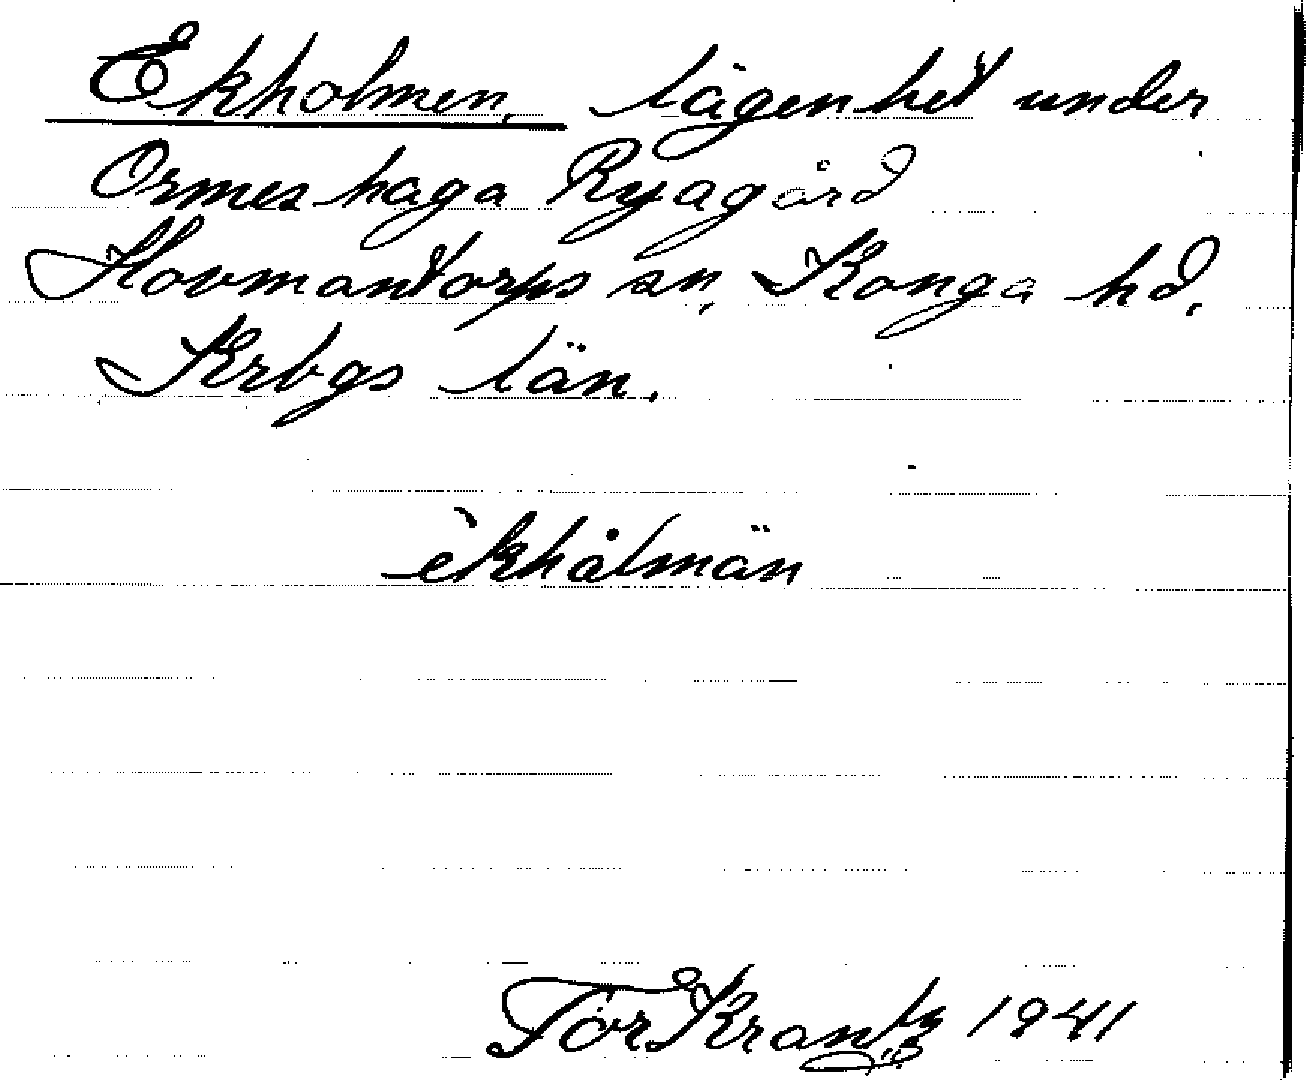 Ekholmen, lägenhet under
Ormeshaga Ryagård
Hovmantorps sn, Konga hd,
Krbgs län.
èkhålmän
Tor Krantz 1941